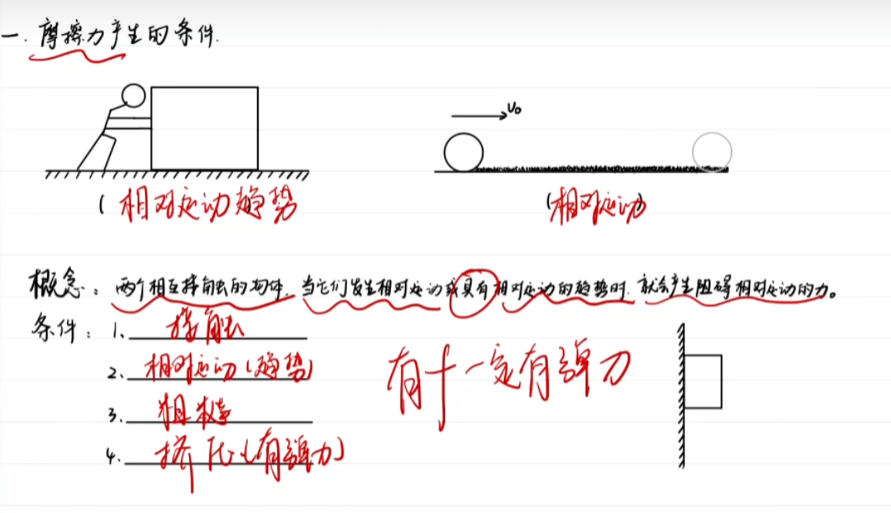 一. 摩擦力产生的条件.
v₀
(相对运动趋势
(相对运动)
概念：两个相互接触的物体，当它们发生相对运动或具有相对运动的趋势时，就会产生阻碍相对运动的力。
条件：1. 接触
2. 相对运动(趋势)
3. 粗糙
4. 挤压(有弹力)
有f一定有弹力